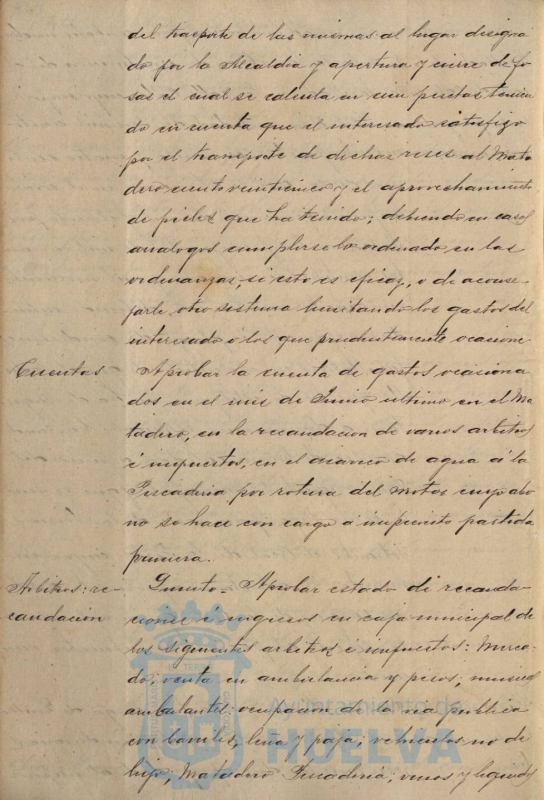 del trasporte de las mismas al lugar designa
do por la Alcaldia y apertura y cierre de fo
sas el cual se calcula en cien pesetas tenien
do en cuenta que el interesado satisfizo
por el transporte de dichas reses al Mata
dero ciento veinticinco y el aprovechamiento
de pieles que ha tenido; debiendo en casos
analogos cumplirse lo ordenado en las
ordenanzas, si esto es eficaz, o de aconse
jarle otro sistema limitando los gastos del
interesado a los que prudentemente ocasione
Cuentas
Aprobar la cuenta de gastos ocasiona
dos en el mes de Junio ultimo en el Ma
tadero, en la recaudacion de varios arbitrios
é impuestos, en el acarreo de agua á la
Pescaderia por rotura del motor cuyo abo
no se hace con cargo a imprevisto partida
primera.
Arbitros: re-
caudación
Quinto = Aprobar estado de recauda
ciones e ingresos en caja municipal de
los siguientes arbitros é impuestos: Merca-
do; venta en ambulancia y pesos, musicos
ambulantes: ocupacion de la via publica
con barriles, leña y paja; vehiculos no de
lujo; Matadero Pescaderia; vinos y liquidos
Ayuntamiento de
HUELVA